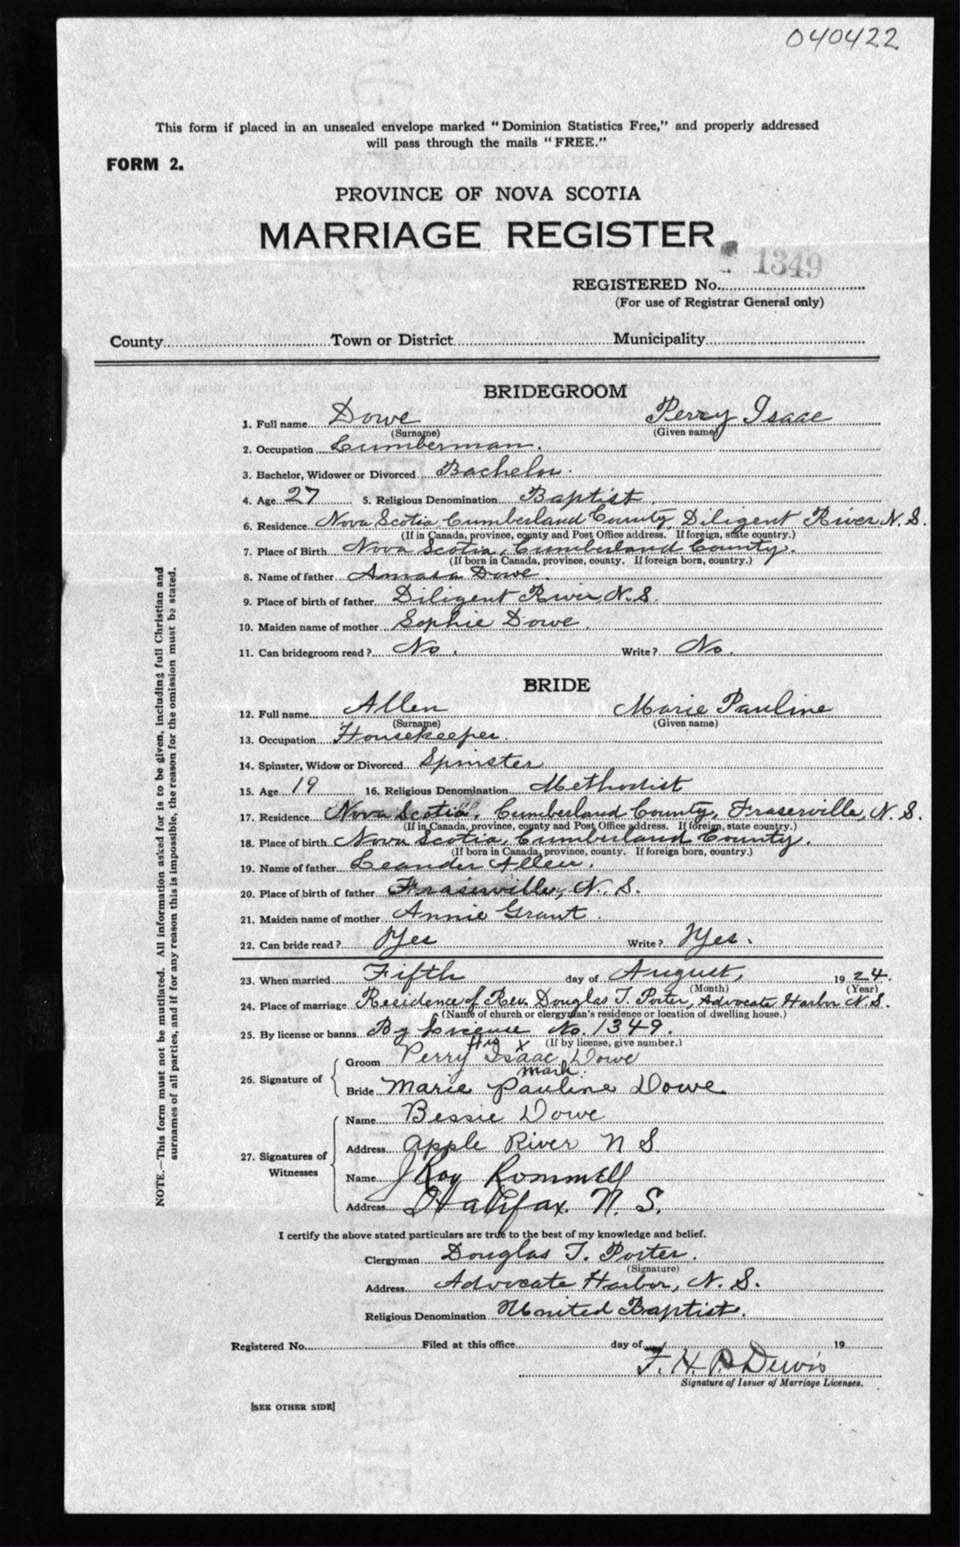 040422
This form if placed in an unsealed envelope marked "Dominion Statistics Free," and properly addressed
will pass through the mails "FREE."
FORM 2.
PROVINCE OF NOVA SCOTIA
MARRIAGE REGISTER
1349
REGISTERED No.
(For use of Registrar General only)
County Town or District Municipality
BRIDEGROOM
1. Full name Dowe Perry Isaac
(Surname) (Given name)
2. Occupation Lumberman.
3. Bachelor, Widower or Divorced Bachelor.
4. Age 27 5. Religious Denomination Baptist.
6. Residence Nova Scotia Cumberland County, Diligent River, N.S.
(If in Canada, province, county and Post Office address. If foreign, state country.)
7. Place of Birth Nova Scotia, Cumberland County.
(If born in Canada, province, county. If foreign born, country.)
8. Name of father Amasa Dowe.
9. Place of birth of father Diligent River, N.S.
10. Maiden name of mother Sophie Dowe.
11. Can bridegroom read? No. Write? No.
BRIDE
12. Full name Allen Marie Pauline
(Surname) (Given name)
13. Occupation Housekeeper.
14. Spinster, Widow or Divorced Spinster
15. Age 19 16. Religious Denomination Methodist
17. Residence Nova Scotia, Cumberland County, Fraserville, N.S.
(If in Canada, province, county and Post Office address. If foreign, state country.)
18. Place of birth Nova Scotia, Cumberland County.
(If born in Canada, province, county. If foreign born, country.)
19. Name of father Leander Allen.
20. Place of birth of father Fraserville, N.S.
21. Maiden name of mother Annie Grant.
22. Can bride read? Yes Write? Yes.
23. When married Fifth day of August, 1924.
(Month) (Year)
24. Place of marriage Residence of Rev. Douglas T. Porter, Advocate Harbor N.S.
(Name of church or clergyman's residence or location of dwelling house.)
25. By license or banns By License No. 1349.
(If by license, give number.)
his x
26. Signature of Groom Perry Isaac Dowe
mark.
Bride Marie Pauline Dowe
27. Signatures of Witnesses
Name Bessie Dowe
Address Apple River N S.
Name J Roy Rommell
Address Halifax. N. S.
I certify the above stated particulars are true to the best of my knowledge and belief.
Clergyman Douglas T. Porter.
(Signature)
Address Advocate Harbor, N. S.
Religious Denomination United Baptist.
Registered No. Filed at this office day of 19
F. H. P. Dewis
Signature of Issuer of Marriage Licenses.
[SEE OTHER SIDE]
NOTE.—This form must not be mutilated. All information asked for is to be given, including full Christian and
surnames of all parties, and if for any reason this is impossible, the reason for the omission must be stated.